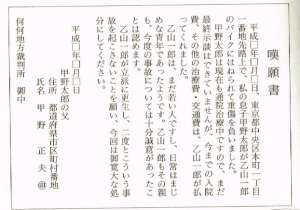 嘆願書
平成□年□月□日、東京都中央区本町一丁目
一番地先路上で、私の息子甲野太郎が乙山一郎
のバイクにはねられて重傷を負いました。
甲野太郎は現在も通院治療中ですので、まだ
最終示談はできていませんが、今までの入院
費、その他の治療費、交通費は、乙山一郎が払
ってくれました。
乙山一郎は、まだ若い人ですし、日常はまじ
めな青年であったようです。乙山一郎もその親
も、今度の事故については十分誠意があったこ
とは認めます。
乙山一郎が立派に更生し、二度とこういう事
故を起こさないことを願い、今回は御寛大な処
分にしてください。
平成□年□月□日
甲野太郎の父
住所 都道府県市区町村番地
氏名 甲野正夫 ㊞
何何地方裁判所 御中